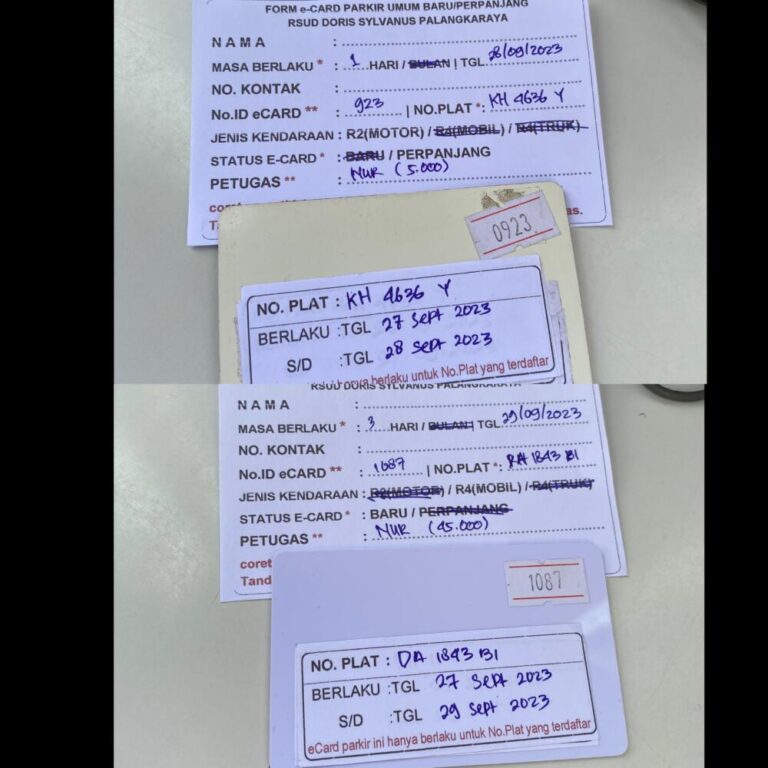 FORM e-CARD PARKIR UMUM BARU/PERPANJANG
RSUD DORIS SYLVANUS PALANGKARAYA
N A M A :
MASA BERLAKU * : 1 HARI / BULAN | TGL. 28/09/2023
NO. KONTAK :
No.ID eCARD ** : 923 | NO.PLAT *: KH 4636 Y
JENIS KENDARAAN : R2(MOTOR) / R4(MOBIL) / R4(TRUK)
STATUS E-CARD * : BARU / PERPANJANG
PETUGAS ** : NUR (5.000)
0923
NO. PLAT : KH 4636 Y
BERLAKU :TGL 27 Sept 2023
S/D :TGL 28 Sept 2023
berlaku untuk No.Plat yang terdaftar
RSUD DORIS SYLVANUS PALANGKARAYA
N A M A :
MASA BERLAKU * : 3 HARI / BULAN | TGL. 29/09/2023
NO. KONTAK :
No.ID eCARD ** : 1087 | NO.PLAT *: DA 1843 BI
JENIS KENDARAAN : R2(MOTOR) / R4(MOBIL) / R4(TRUK)
STATUS E-CARD * : BARU / PERPANJANG
PETUGAS ** : NUR (45.000)
1087
NO. PLAT : DA 1843 BI
BERLAKU :TGL 27 Sept 2023
S/D :TGL 29 Sept 2023
eCard parkir ini hanya berlaku untuk No.Plat yang terdaftar